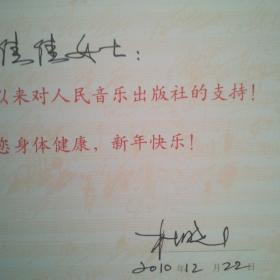 佳佳女士：
以来对人民音乐出版社的支持！
您身体健康，新年快乐！
2010年12月22日